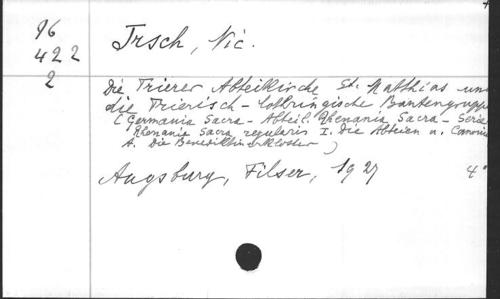 96
422
2
Irsch, Nic.
Die Trierer Abteikirche St. Matthias und
die Trierisch-lothringische Bautengruppe
(Germania Sacra - Abteil. Rhenania Sacra - Serie
Rhenania Sacra regularis I. Die Abteien u. Canonie
A. Die Benediktinerklöster )
Augsburg, Filser, 1927
4°